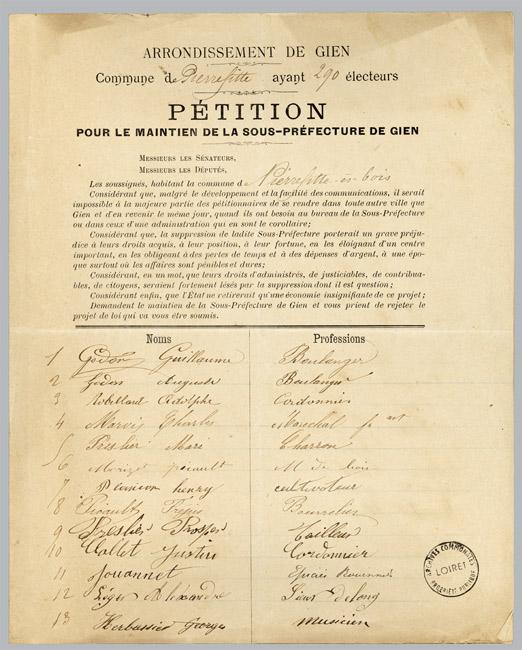 ARRONDISSEMENT DE GIEN
Commune de Pierrefitte ayant 290 électeurs
PÉTITION
POUR LE MAINTIEN DE LA SOUS-PRÉFECTURE DE GIEN
MESSIEURS LES SÉNATEURS,
MESSIEURS LES DÉPUTÉS,
Les soussignés, habitant la commune de Pierrefitte-ès-bois
Considérant que, malgré le développement et la facilité des communications, il serait
impossible à la majeure partie des pétitionnaires de se rendre dans toute autre ville que
Gien et d'en revenir le même jour, quand ils ont besoin au bureau de la Sous-Préfecture
ou dans ceux d'une administration qui en sont le corollaire;
Considérant, que la suppression de ladite Sous-Préfecture porterait un grave préju-
dice à leurs droits acquis, à leur position, à leur fortune, en les éloignant d'un centre
important, en les obligeant à des pertes de temps et à des dépenses d'argent, à une épo-
que surtout où les affaires sont pénibles et dures;
Considérant, en un mot, que leurs droits d'administrés, de justiciables, de contribua-
bles, de citoyens, seraient fortement lésés par la suppression dont il est question;
Considérant enfin, que l'État ne retirerait qu'une économie insignifiante de ce projet;
Demandent le maintien de la Sous-Préfecture de Gien et vous prient de rejeter le
projet de loi qui va vous être soumis.
Noms Professions
1 Godon Guillaume Boulanger
2 Godon Auguste Boulanger
3 Robillard Adolphe Cordonnier
4 Charles Maréchal
5 Preslier Mari Charron
6 Md de bois
7 henry cultivateur
8 Bourrelier
9 Preslier Prosper Tailleur
10 Collet Justin Cordonnier
11 Jouannet
12 Léger Alexandre
13 Herbussier Georges musicien
ARCHIVES COMMUNALES
LOIRET